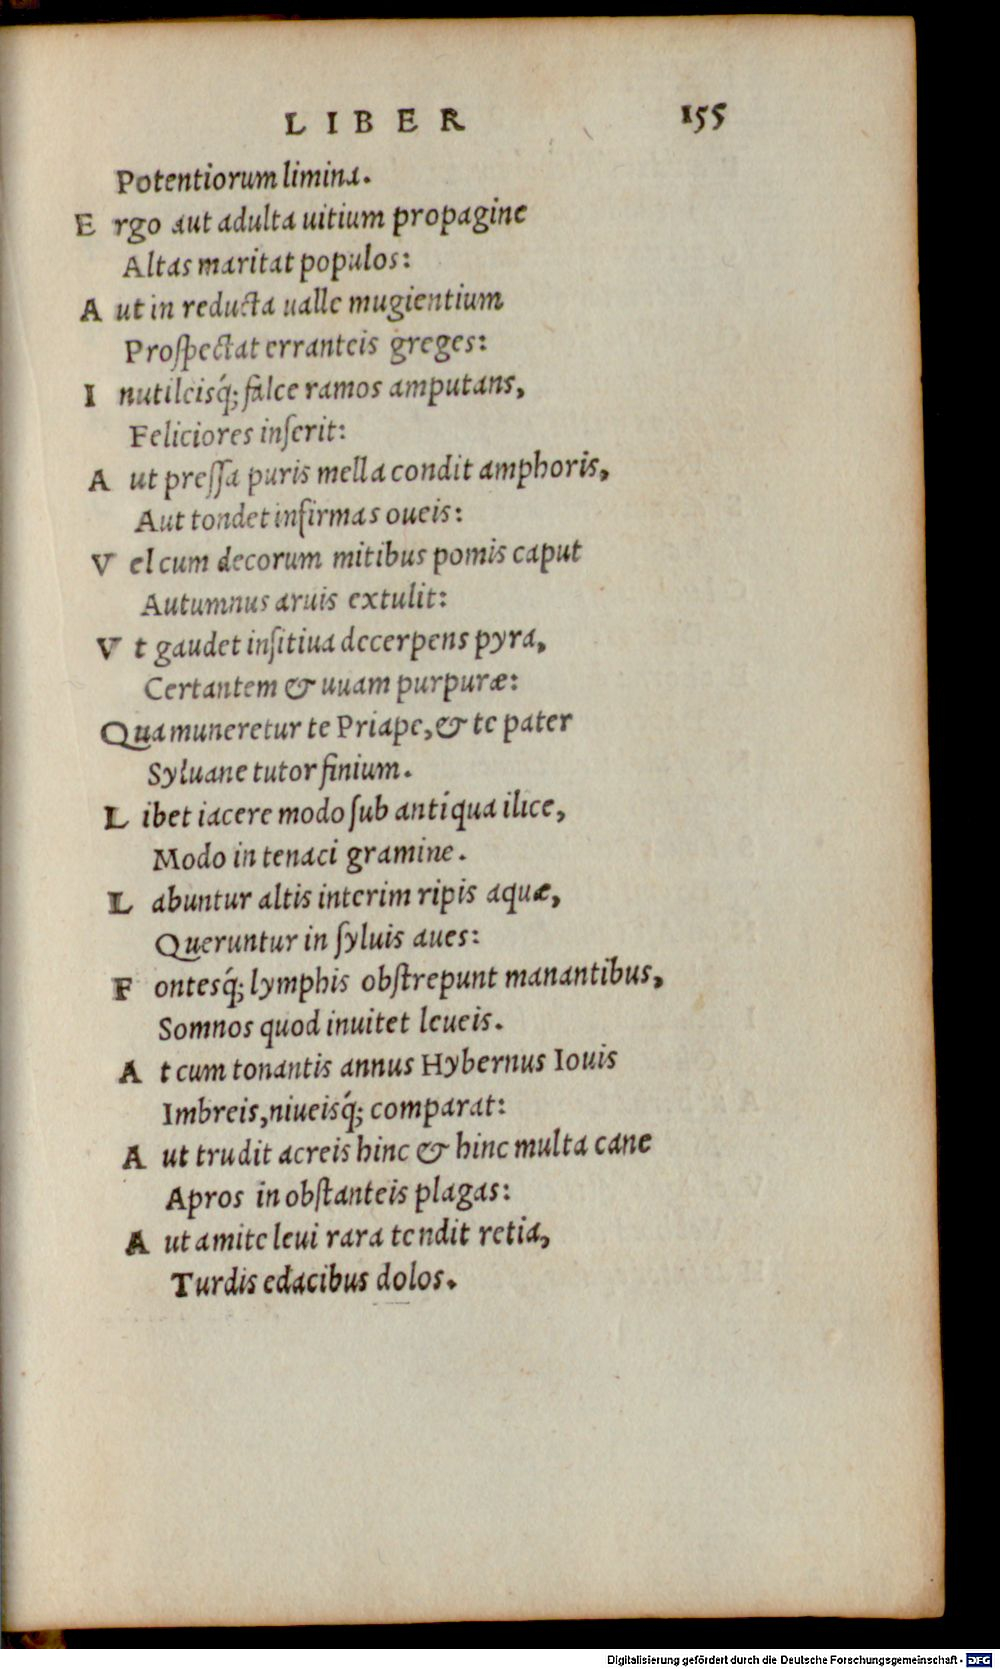 LIBER 155
Potentiorum limina.
Ergo aut adulta uitium propagine
Altas maritat populos:
Aut in reducta ualle mugientium
Prospectat erranteis greges:
Inutileisq́; falce ramos amputans,
Feliciores inserit:
Aut pressa puris mella condit amphoris,
Aut tondet infirmas oueis:
Vel cum decorum mitibus pomis caput
Autumnus aruis extulit:
Vt gaudet insitiua decerpens pyra,
Certantem & uuam purpuræ:
Qua muneretur te Priape, & te pater
Syluane tutor finium.
Libet iacere modo sub antiqua ilice,
Modo in tenaci gramine.
Labuntur altis interim ripis aquæ,
Queruntur in syluis aues:
Fontesq́; lymphis obstrepunt manantibus,
Somnos quod inuitet leueis.
At cum tonantis annus Hybernus Iouis
Imbreis, niueisq́; comparat:
Aut trudit acreis hinc & hinc multa cane
Apros in obstanteis plagas:
Aut amite leui rara tendit retia,
Turdis edacibus dolos.
Digitalisierung gefördert durch die Deutsche Forschungsgemeinschaft - DFG